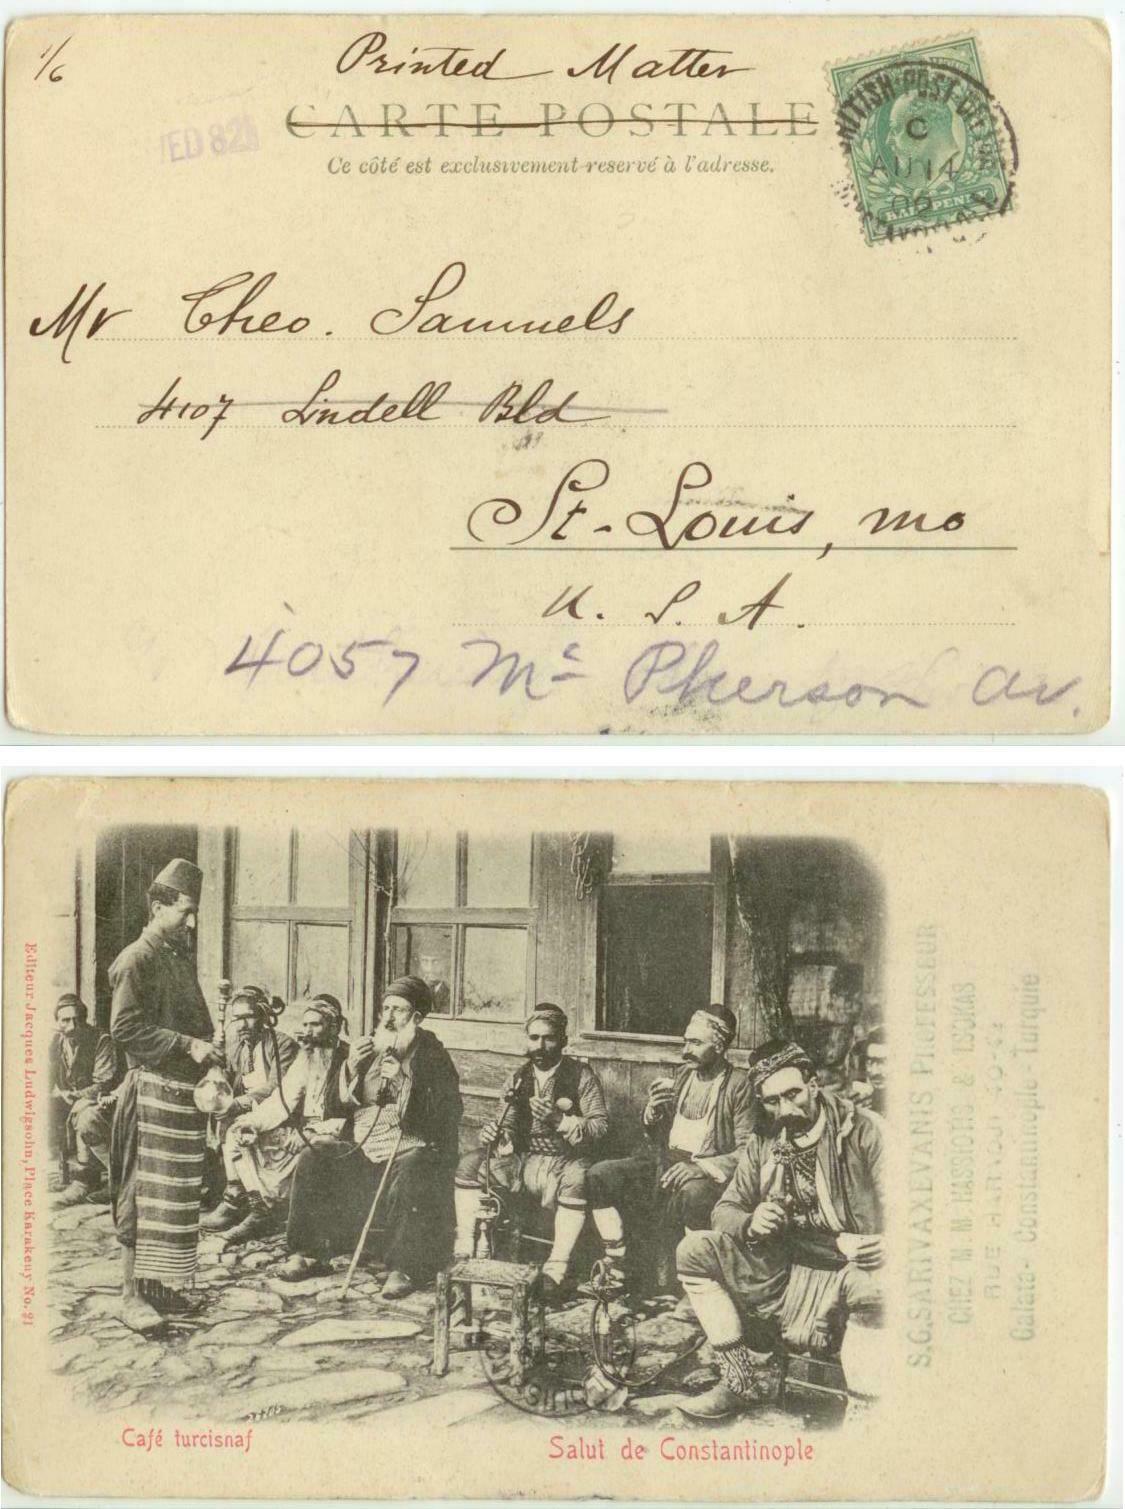 1/6
Printed Matter
CARTE POSTALE
Ce côté est exclusivement reservé à l'adresse.
ED 82
BRITISH POST OFFICE
C
AU 14
HALFPENNY
Mr Theo. Samuels
4107 Lindell Bld
St-Louis, mo
U. S. A.
4057 Mc Pherson av.
Editeur Jacques Ludwigsohn, Place Karakeuy No. 21
S.G.SARIVAXEVANIS PROFESSEUR
CHEZ M.M. HASSIOTIS & TSOKAS
RUE HARVOUT
Galata - Constantinople - Turquie
ST. LOUIS
Café turcisnaf
Salut de Constantinople